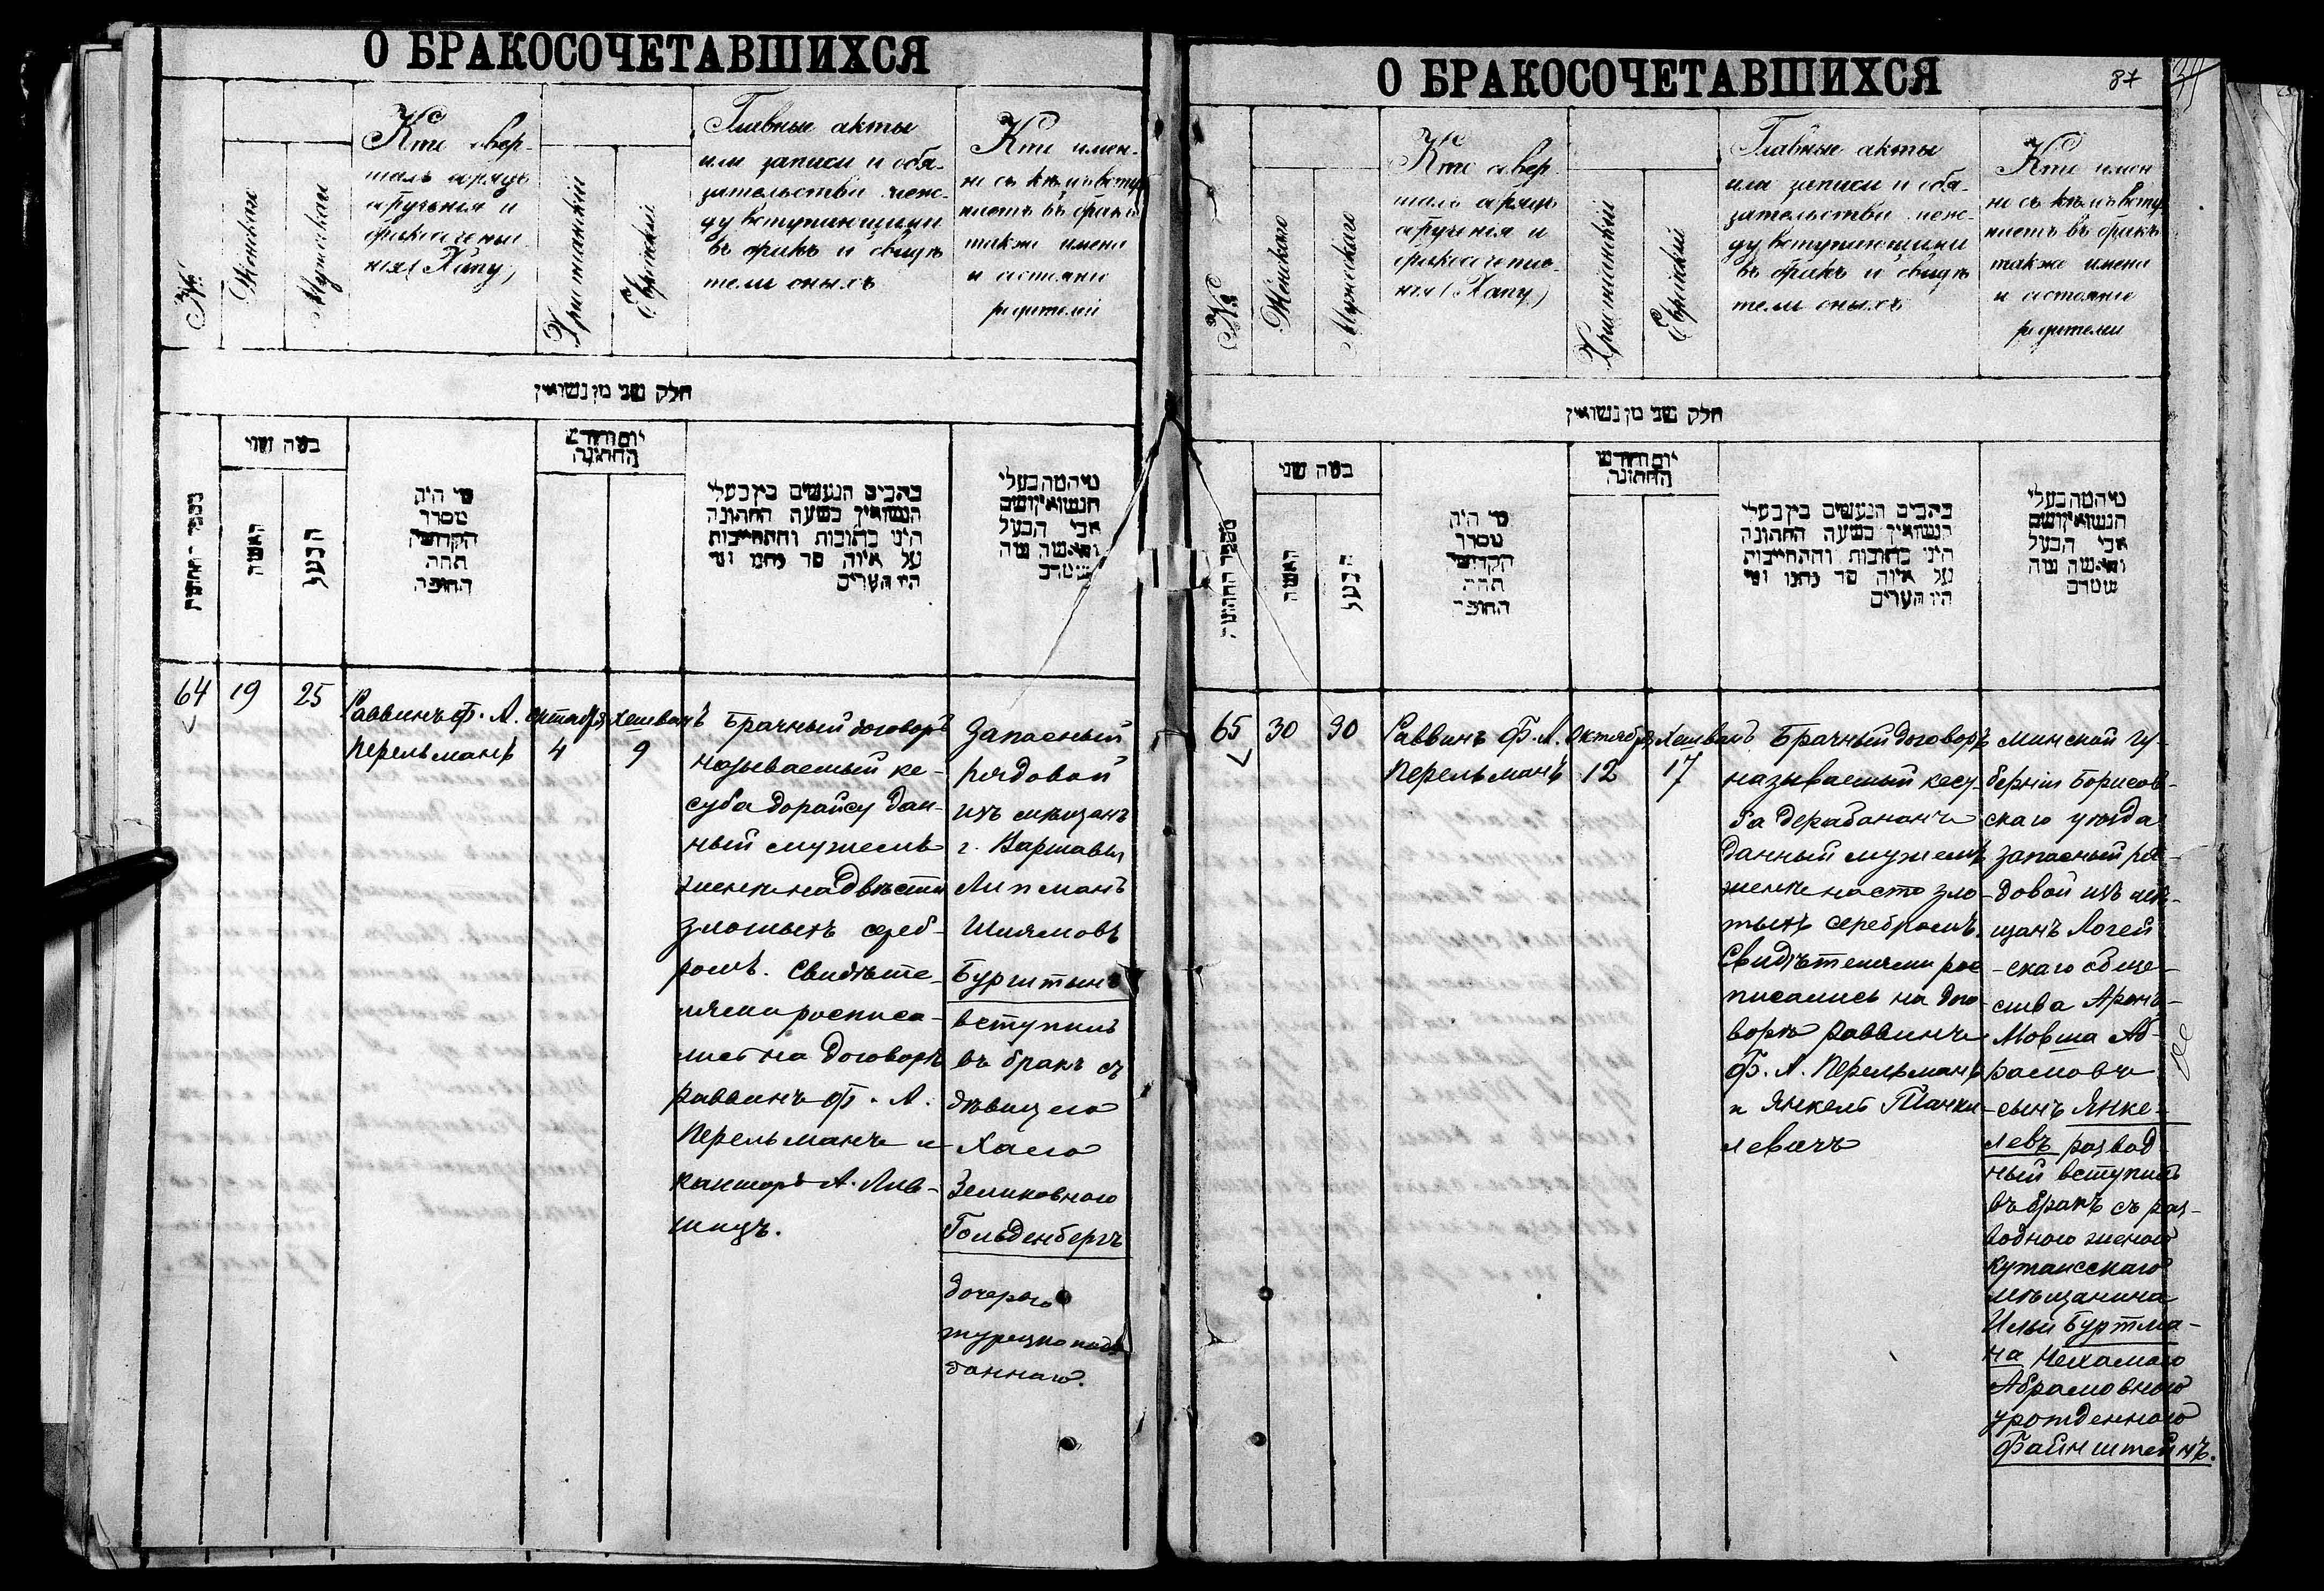 О БРАКОСОЧЕТАВШИХСЯ
№
Женская
Мужская
Кто совер-
шалъ обрядъ
обрученія и
бракосочета-
нія (Хупу)
Христіанскій
Еврейскій
Главные акты
или записи и обя-
зательства меж-
ду вступающими
въ бракъ и свидѣ
тели оныхъ
Кто имен-
но съ кѣмъ всту
паетъ въ бракъ
также имена
и состояніе
родителей
חלק שני מן נשואין
מספר החתונות
כמה שני
האשה
הבעל
מי היה
מסדר
הקדושין
תחת
החופה
יום וחודש
החתונה
כתבים הנעשים בין בעלי
הנשואין בשעה החתונה
היינו כתובות והתחייבות
על איזה סך נתנו ומי
היו העדים
מי המה בעלי
הנשואין ושם
אבי הבעל
והאשה מה
64
19
25
Раввинъ Ф. Л.
Перельманъ
Октября
4
Хешванъ
9
Брачный договоръ
называемый ке-
суба дорайсу дан-
ный мужемъ
женѣ на двѣсти
злотыхъ сереб-
ромъ. Свидѣте-
лями росписа-
лись на договорѣ
раввинъ Ф. Л.
Перельманъ и
канторъ А. Лив-
шицъ.
Запасный
рядовой
изъ мѣщанъ
г. Варшавы
Липманъ
Шлямовъ
Бурштынъ
вступилъ
въ бракъ съ
дѣвицею
Хаею
Зеликовною
Гольденбергъ
дочерью
турецко подъ
даннаго.
О БРАКОСОЧЕТАВШИХСЯ
87
№
Женскаго
Мужескаго
Кто совер
шалъ обрядъ
обрученія и
бракосочета-
нія (Хупу)
Христіанскій
Еврейскій
Главные акты
или записи и обя-
зательства меж-
ду вступающими
въ бракъ и свидѣ
тели оныхъ
Кто имен
но съ кѣмъ всту
паетъ въ бракъ
также имена
и состояніе
родителей
חלק שני מן נשואין
מספר החתונות
כמה שני
האשה
הבעל
מי היה
מסדר
הקדושין
תחת
החופה
יום וחודש
החתונה
כתבים הנעשים בין בעלי
הנשואין בשעה החתונה
היינו כתובות והתחייבות
על איזה סך נתנו ומי
היו העדים
מי המה בעלי
הנשואין ושם
אבי הבעל
והאשה מה
65
30
30
Раввинъ Ф. Л.
Перельманъ
Октября
12
Хешванъ
17
Брачный договоръ
называемый кесу-
ба дерабананъ
данный мужемъ
женѣ на сто зло-
тыхъ серебромъ.
Свидѣтелями рос
писались на дого-
ворѣ раввинъ
Ф. Л. Перельманъ
и Янкель Манки-
левичъ
Минской гу-
берніи Борисов-
скаго уѣзда
запасный ря-
довой изъ мѣ-
щанъ Логой
-скаго обще-
ства Аронъ-
Мовша Аб-
рамовъ
сынъ Янке-
левъ развод
ный вступилъ
въ бракъ съ раз-
водною женою
Кутаисскаго
мѣщанина
Ильи Буртма-
на Нехамою
Абрамовною
урожденною
Файнштейнъ.